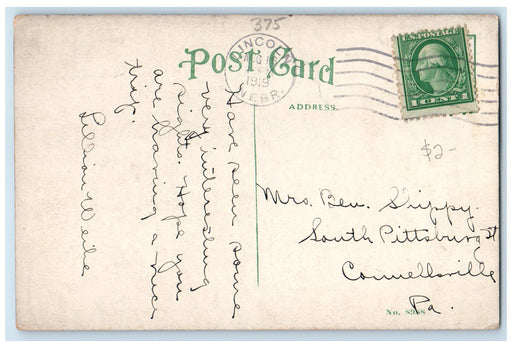 375
Post Card
LINCOLN
1915
NEBR.
U.S. POSTAGE
1 CENT 1
ADDRESS
$2-
Have seen some
very interesting
sights. Hope you
are having a nice
trip.
Lillian Weile
Mrs. Ben. Shippy.
South Pittsburg St
Connellsville
Pa.
No. 8958